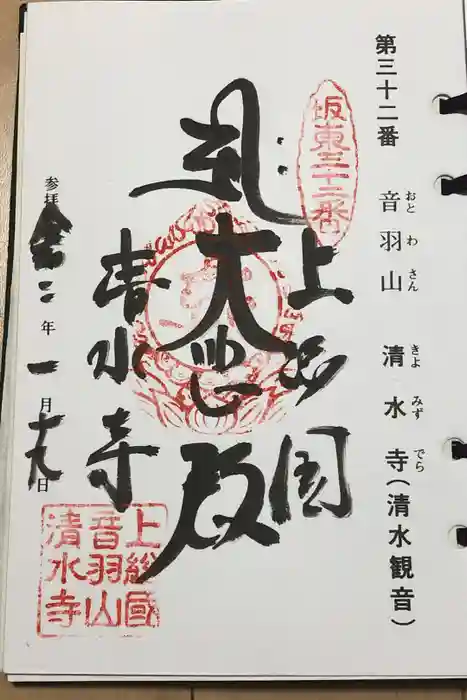 第三十二番 音羽山 清水寺(清水観音)
おと わ さん きよ みず でら
坂東三十二番
上総国
大悲殿
清水寺
参拝 令二年 一月十九日
上總國
音羽山
清水寺